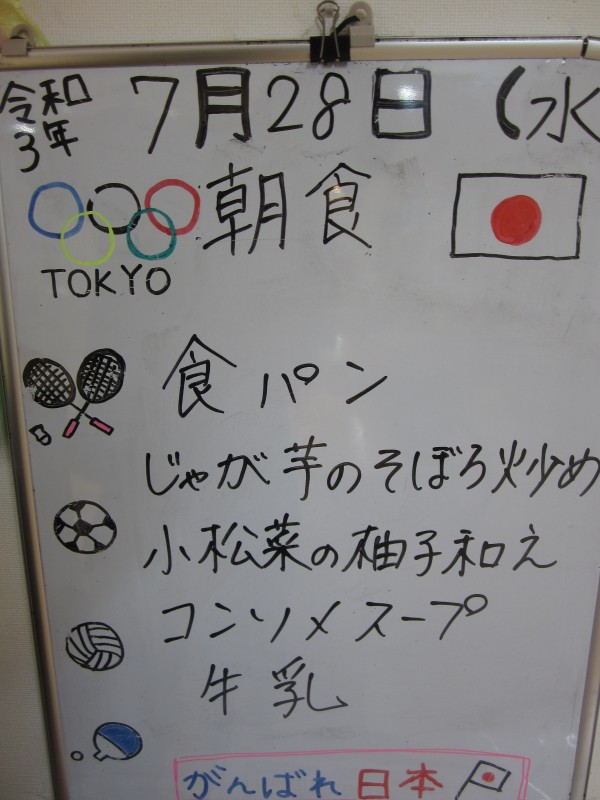 令和3年 7月28日 (水
朝食
TOKYO
食パン
じゃが芋のそぼろ炒め
小松菜の柚子和え
コンソメスープ
牛乳
がんばれ日本